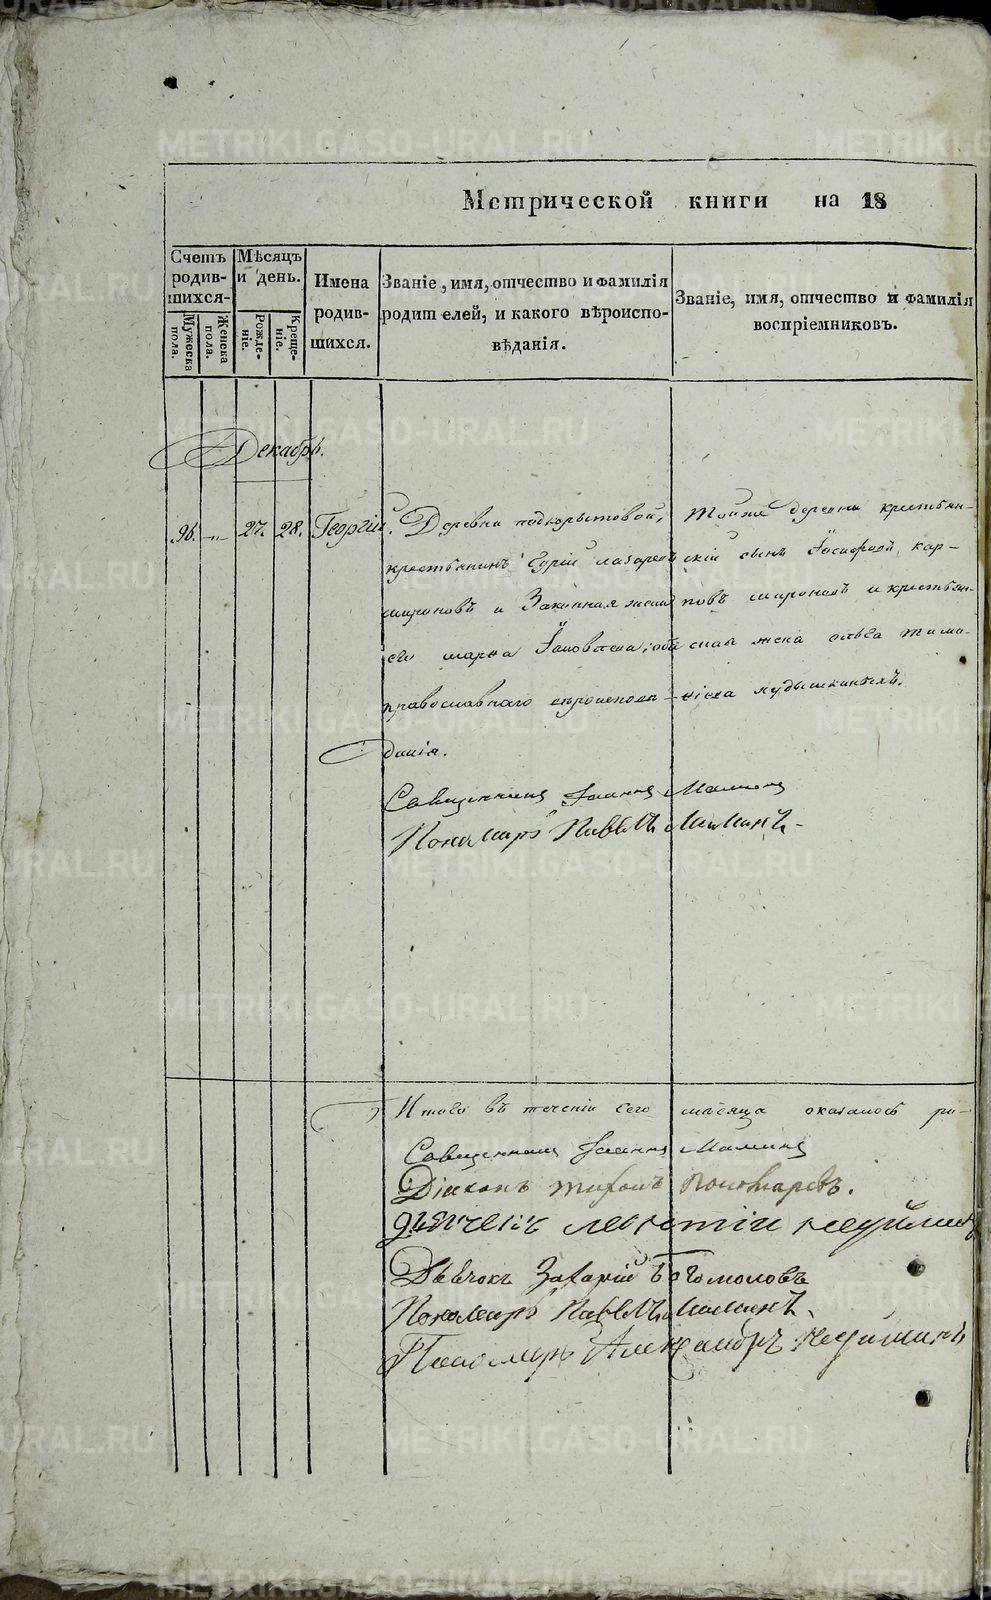 METRIKI.GASO-URAL.RU
Метрической книги на 18
Счетъ родив-шихся-
Мужеска пола.
Женска пола.
Мѣсяцъ и день.
Рожде-ніе.
Креще-ніе.
Имена родив-шихся.
Званіе, имя, отчество и фамилія родит елей, и какого вѣроиспо-вѣданія.
Званіе, имя, отчество и фамилія воспріемниковъ.
Декабрь.
96. -„- 27. 28. Георгій.
Деревни подкорытовой,
крестьянинъ Гурій лазаревъ
мироновъ и Законная жена
его марѳа
православнаго вѣроисповѣ-
данія.
Тойже деревни крестьян-
скій сынъ Іосифъ кар-
повъ мироновъ и крестьян-
ская жена ольга тимо-
Священникъ Іоаннъ Маминъ
Пономарь Павелъ Маминъ -
Итого въ теченіи сего мѣсяца оказалось ро-
Священникъ Іоаннъ Маминъ
Діаконъ Тихонъ Пономаревъ.
Дьячекъ леонтій
Дьячокъ Захарій Богомоловъ
Пономарь Павелъ Маминъ
Пономарь Александръ